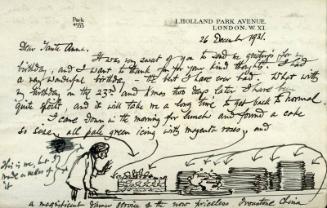 Park
4555
1, HOLLAND PARK AVENUE,
LONDON. W. XI.
26 December 1921.
Dear Tante Anna,
It was very sweet of you to send me greetings for my
birthday, and I want to thank you for your kind thoughts - I had
a very wonderful birthday - the best I have ever had. What with
my birthday on the 23rd and Xmas two days later I have been
quite spoilt, and it will take me a long time to get back to normal.
I came down in the morning for lunch and found a cake
so large, all pale green icing with magenta roses, and
This is me, but
made a mess of
it
a magnificent dinner service of the now priceless China